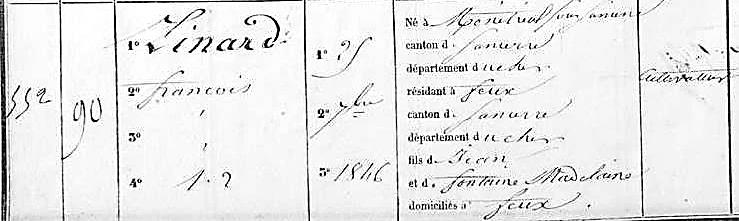 552
90
1° Linard
2° francois
3° "
4° 1-2
1° 25
2° 7bre
3° 1846
Né à Ménétréol sous Sancerre
canton d Sancerre
département du cher
résidant à feux
canton d Sancerre
département du cher
fils d Jean
et d. fontaine Madelaine
domiciliés à feux.
Cultivateur